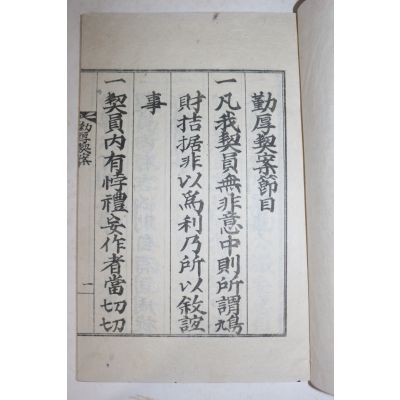 勤厚契案節目
一凡我契員無非意中則所謂鳩
財拮据非以爲利乃所以敘誼
事
一契員内有悖禮妄作者當切切
勤厚契案
一